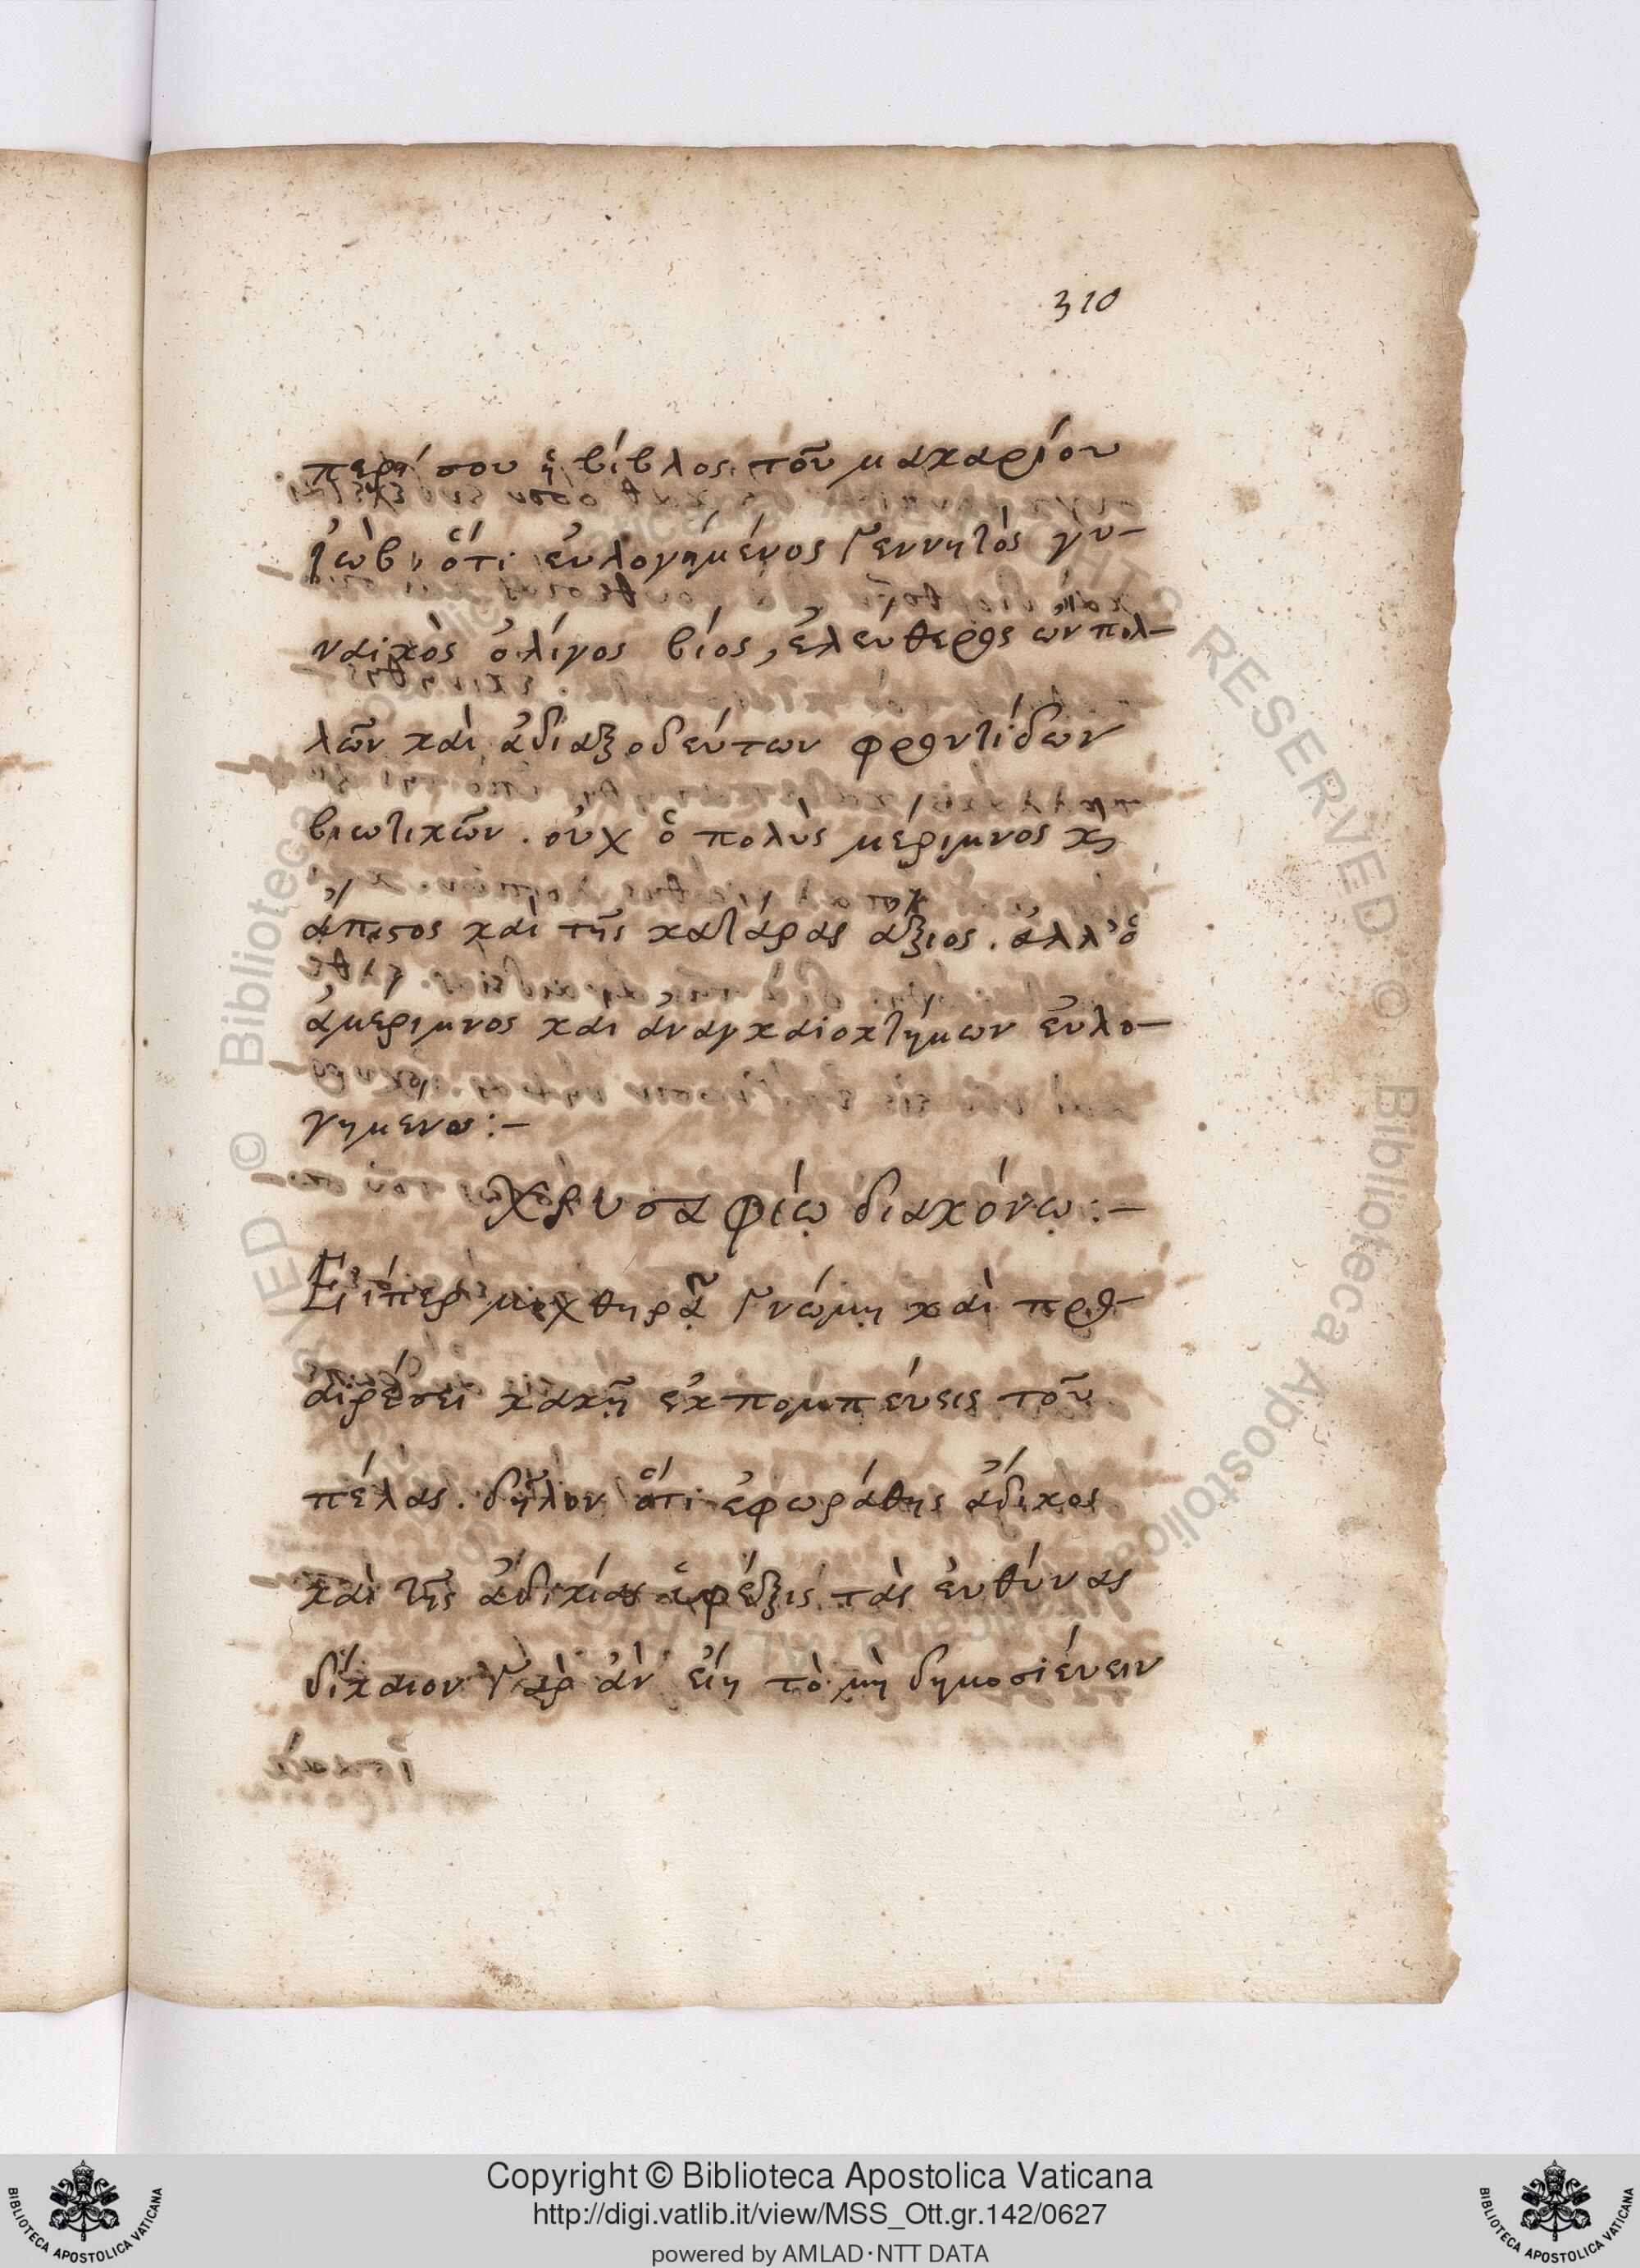 310
περί σου ἡ βίβλος τοῦ μακαρίου
Ἰώβ, ὅτι εὐλογημένος γεννητὸς γυ-
ναικὸς ὀλίγος βίος, ἐλεύθερος ὢν πολ-
λῶν καὶ ἀδιαξοδεύτων φροντίδων
βιωτικῶν. οὐχ ὁ πολὺς μέριμνος κὶ
ἄπιστος καὶ τῆς κατάρας ἄξιος. ἀλλ' ὁ
ἀμεριμνος καὶ ἀναγκαιοκτήμων εὐλο-
γημενος:-
Χρυσαφίῳ διακόνῳ:-
Εἴπερ μοχθηρᾷ γνώμῃ καὶ προ-
αιρέσει κακῇ ἐκπομπεύεις τοῦ
πέλας. δῆλον ὅτι ἐφωράθης ἄδικος
καὶ τῆς ἀδικίας ὑφέξις τὰς εὐθύνας
δίκαιον γὰρ ἂν εἴη τὸ μὴ δημοσιεύειν
Copyright © Biblioteca Apostolica Vaticana
http://digi.vatlib.it/view/MSS_Ott.gr.142/0627
powered by AMLAD·NTT DATA
BIBLIOTECA APOSTOLICA VATICANA
BIBLIOTECA APOSTOLICA VATICANA